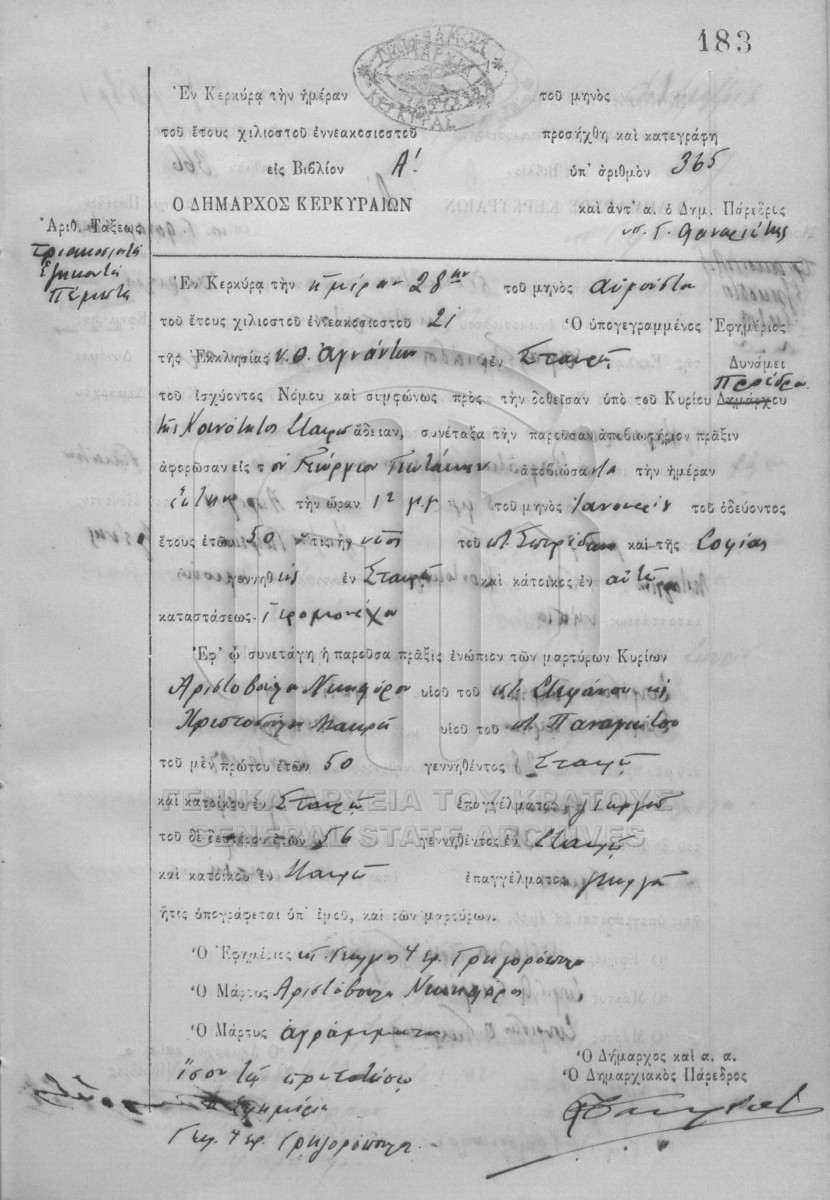 183
ΔΗΜΑΡΧΙΑ
ΚΕΡΚΥΡΑΣ
Ἐν Κερκύρᾳ τὴν ἡμέραν τοῦ μηνὸς
τοῦ ἔτους χιλιοστοῦ ἐννεακοσιοστοῦ προσήχθη καὶ κατεγράφη
εἰς Βιβλίον Α! ὑπ' ἀριθμὸν 365
Ο ΔΗΜΑΡΧΟΣ ΚΕΡΚΥΡΑΙΩΝ καὶ ἀντ' α. ὁ Δημ. Πάρεδρος
Ἀριθ. Τάξεως
τριακοσιοστή
ἑξηκοστή
πέμπτη
Ἐν Κερκύρᾳ τὴν ἡμέραν 28ην τοῦ μηνὸς αὐγούστου
τοῦ ἔτους χιλιοστοῦ ἐννεακοσιοστοῦ 21 Ὁ ὑπογεγραμμένος Ἐφημέριος
τῆς Ἐκκλησίας ἐν Σταυρῷ Δυνάμει
τοῦ ἰσχύοντος Νόμου καὶ συμφώνως πρὸς τὴν δοθεῖσαν ὑπὸ τοῦ Κυρίου Δημάρχου Παρέδρου
τῆς Κοινότητος Σταυροῦ ἄδειαν, συνέταξα τὴν παροῦσαν ἀποβιωτήριον πρᾶξιν
ἀφορῶσαν εἰς τὸν Γεώργιον ἀποβιώσαντα τὴν ἡμέραν
τὴν ὥραν 12 μ.μ. τοῦ μηνὸς Ἰανουαρίου τοῦ ὁδεύοντος
ἔτους ἐτῶν 50 υἱὸς τοῦ π. Σπυρίδωνος καὶ τῆς Σοφίας
γεννηθεὶς ἐν Σταυρῷ καὶ κάτοικος ἐν αὐτῷ
καταστάσεως Ἱερομονάχου
Ἐφ' ᾧ συνετάγη ἡ παροῦσα πρᾶξις ἐνώπιον τῶν μαρτύρων Κυρίων
Ἀριστοβούλου Νικηφόρου υἱοῦ τοῦ π. Στεφάνου κὶ
Χριστοδούλου Μακρῆ υἱοῦ τοῦ π. Παναγιώτου
τοῦ μὲν πρώτου ἐτῶν 50 γεννηθέντος Σταυρῷ
καὶ κατοίκου ἐν Σταυρῷ ἐπαγγέλματος γεωργοῦ
ΓΕΝΙΚΑ ΑΡΧΕΙΑ ΤΟΥ ΚΡΑΤΟΥΣ
GENERAL STATE ARCHIVES
τοῦ δὲ δευτέρου ἐτῶν 56 γεννηθέντος ἐν Σταυρῷ
καὶ κατοίκου ἐν Σταυρῷ ἐπαγγέλματος γεωργοῦ
ἥτις ὑπογράφεται ὑπ' ἐμοῦ, καὶ τῶν μαρτύρων.
Ὁ Ἐφημέριος Γεώργιος Γρηγορόπουλος
Ὁ Μάρτυς Ἀριστόβουλος Νικηφόρος
Ὁ Μάρτυς ἀγράμματος
Ὁ Δήμαρχος καὶ α. α.
Ὁ Δημαρχιακὸς Πάρεδρος
Ἴσον τῷ πρωτοτύπῳ
Ὁ Ἐφημέριος
Γεώρ. Γρηγορόπουλος